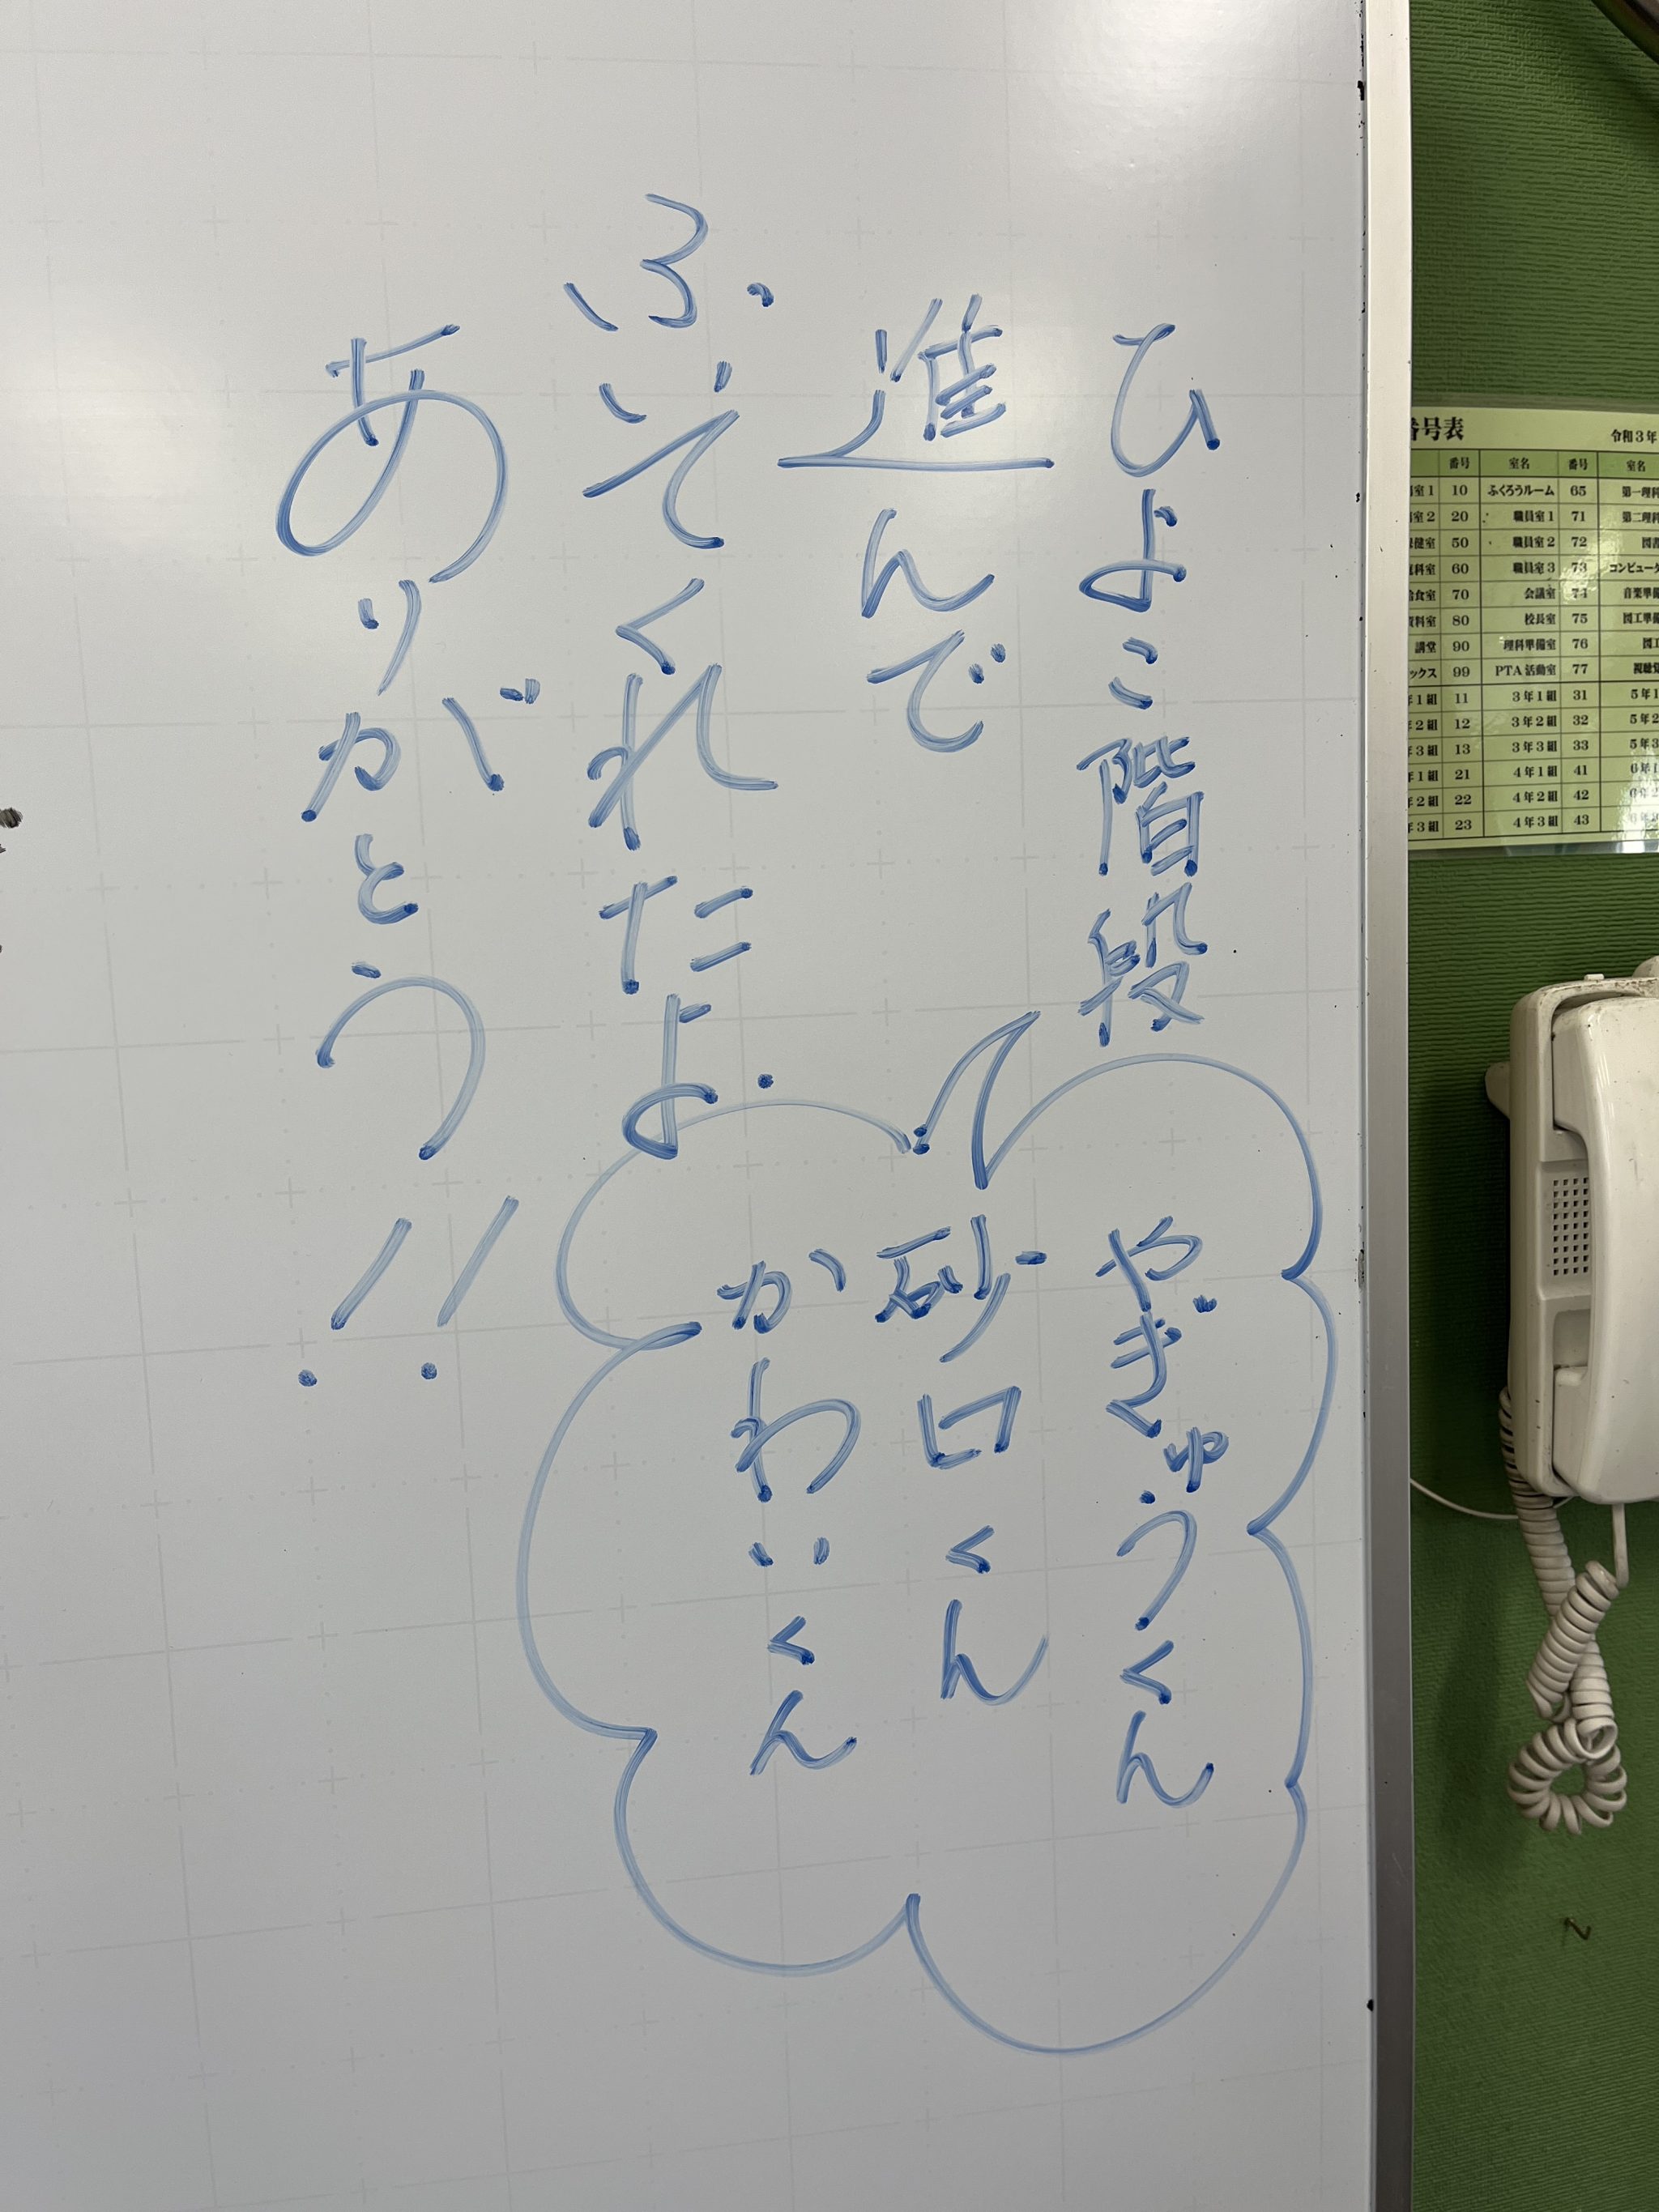 ひよこ階段
進んで
ふいてくれたよ
ありがとう!!
やぎゅうくん
砂口くん
かわいくん
番号表
令和3年
番号 室名 番号 室名
室1 10 ふくろうルーム 65 第一理科
室2 20 職員室1 71 第二理科
保健室 50 職員室2 72 図書
60 職員室3 73 コンピュータ
給食室 70 会議室 74 音楽準備
資料室 80 校長室 75 図工準備
講堂 90 理科準備室 76 図工
ックス 99 PTA活動室 77 視聴覚
年1組 11 3年1組 31 5年1
年2組 12 3年2組 32 5年2
年3組 13 3年3組 33 5年3
年1組 21 4年1組 41 6年1
年2組 22 4年2組 42 6年2
年3組 23 4年3組 43